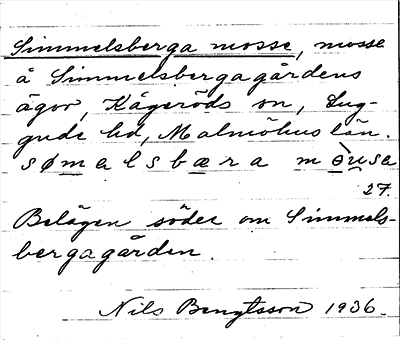 Simmelsberga mosse, mosse
å Simmelsbergagårdens
ägor, Kågeröds sn, Lug-
gude hd, Malmöhus län.
sømelsbæra mòu̯sa
27.
Belägen söder om Simmels-
bergagården.
Nils Bengtsson 1936.